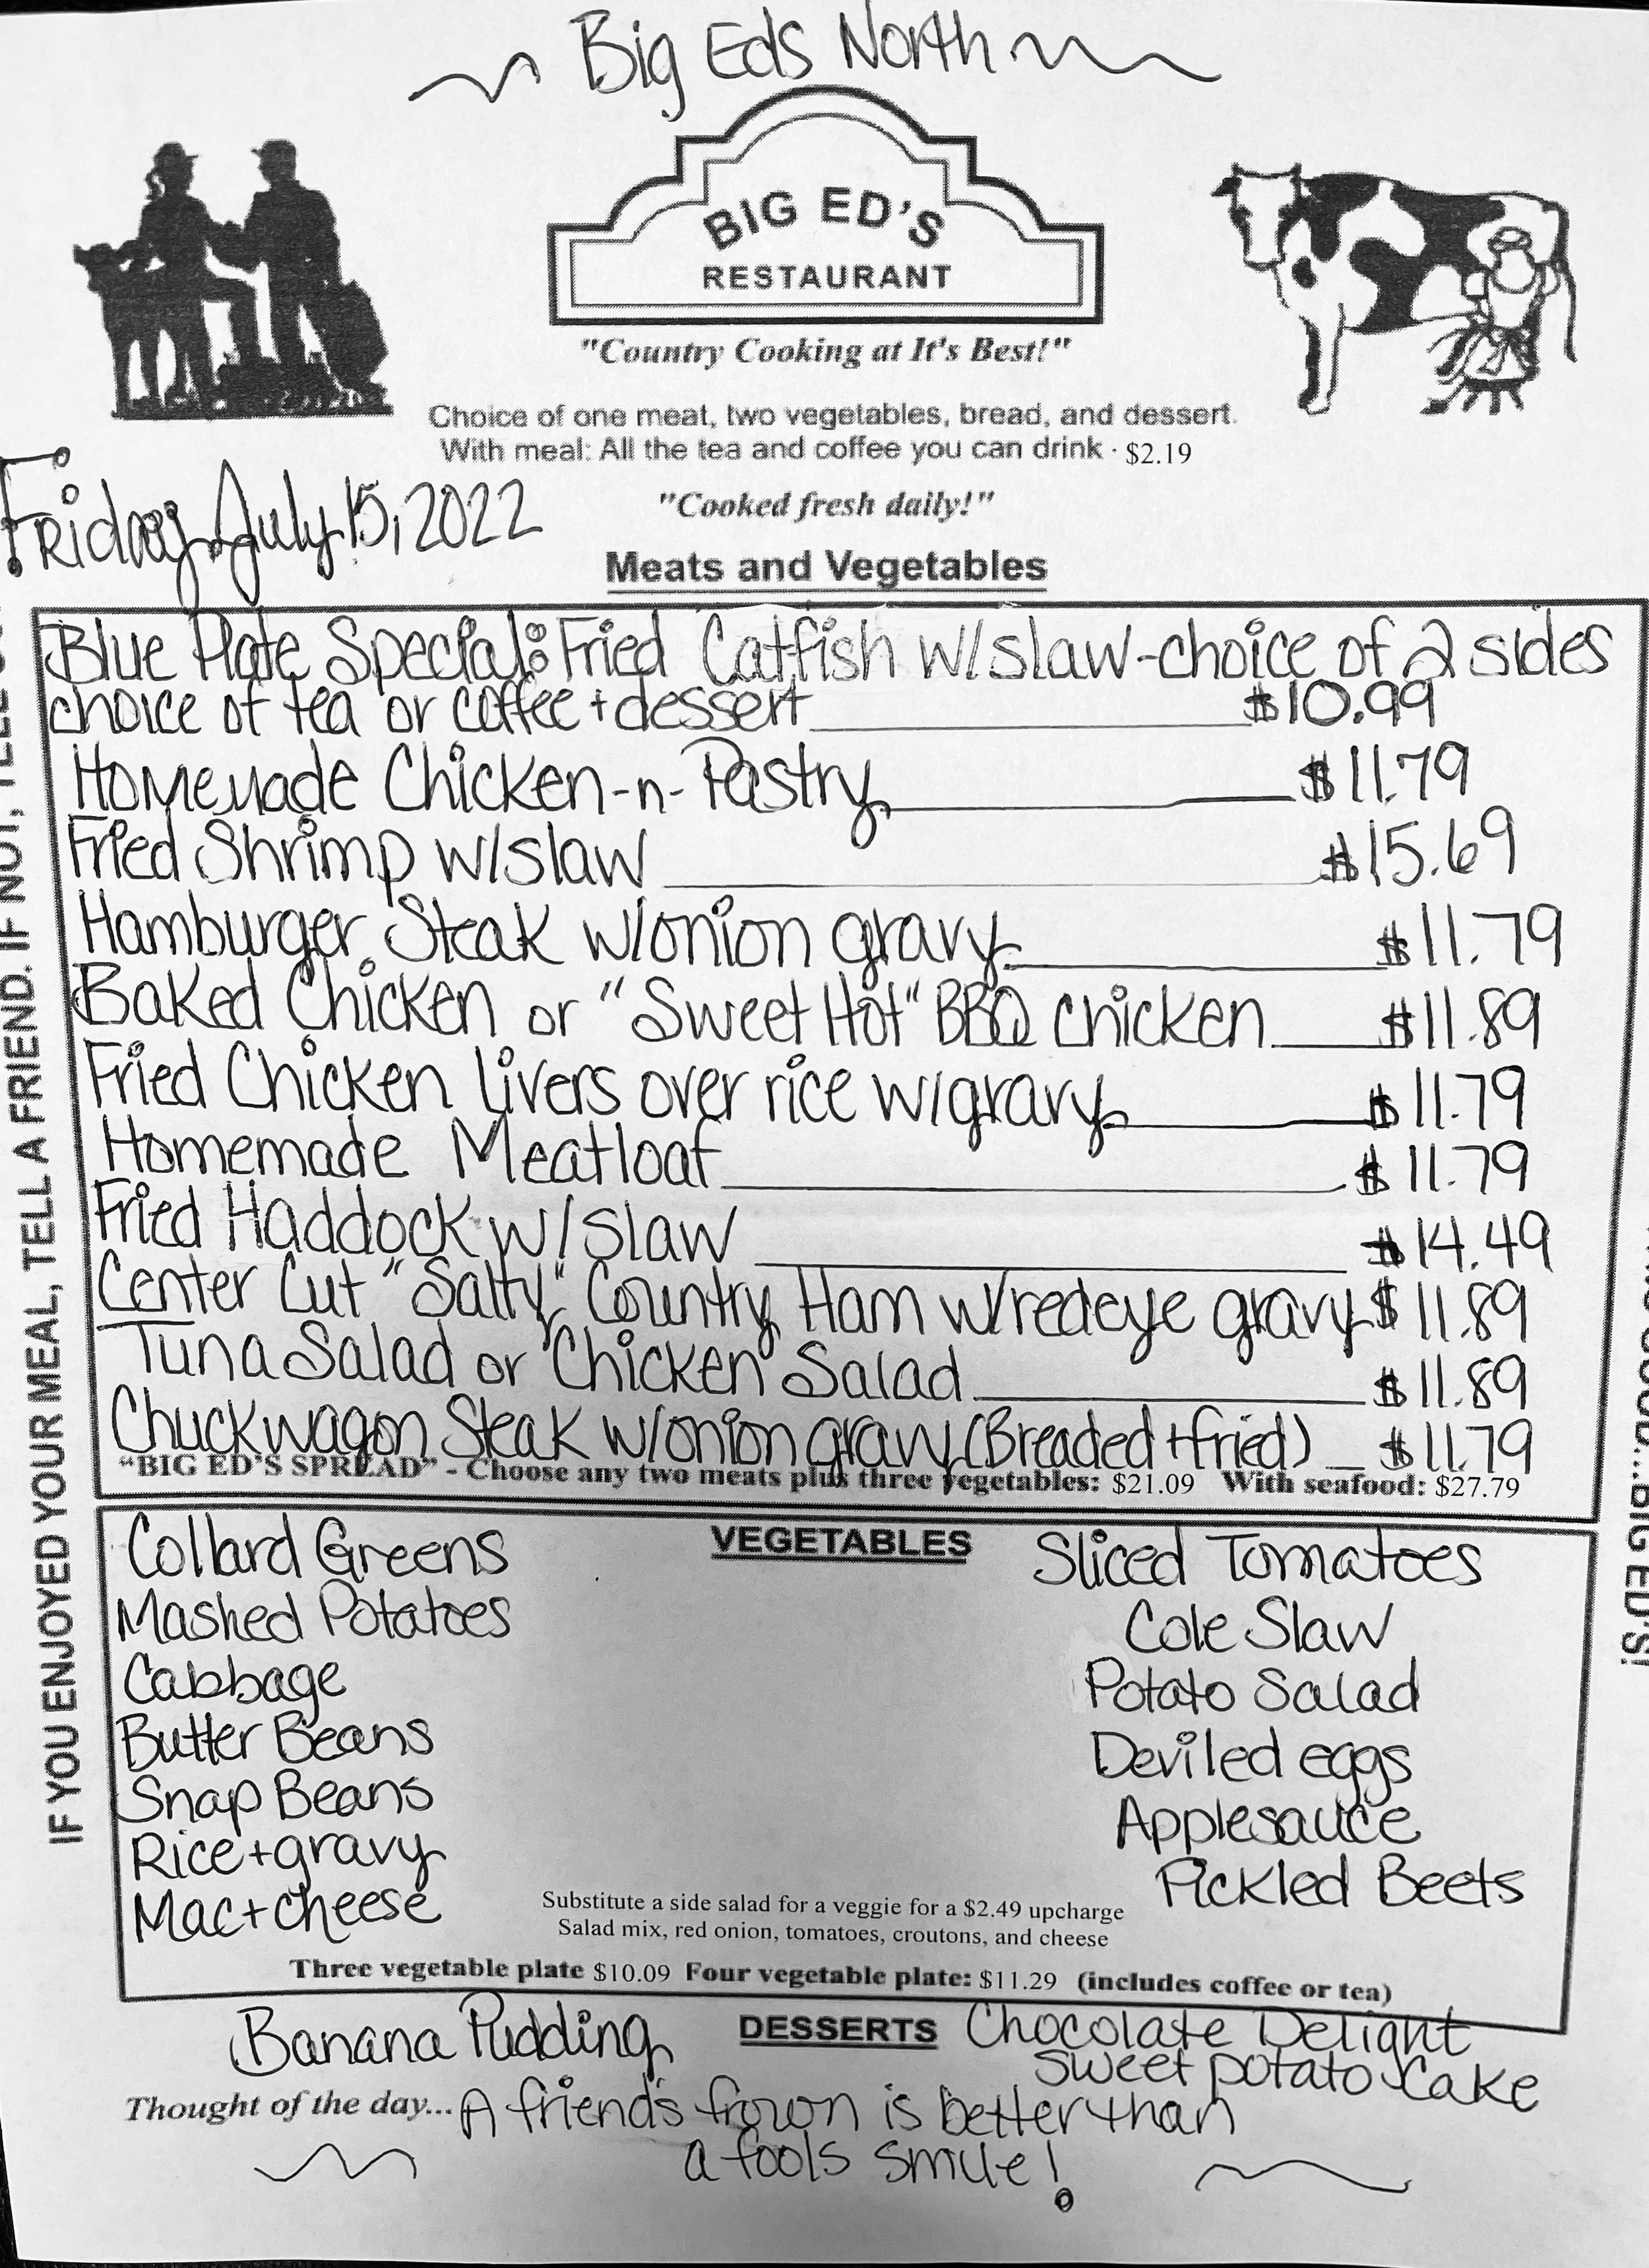 Big Eds North
BIG ED'S
RESTAURANT
"Country Cooking at It's Best!"
Choice of one meat, two vegetables, bread, and dessert.
With meal: All the tea and coffee you can drink · $2.19
Friday July 15, 2022
"Cooked fresh daily!"
Meats and Vegetables
Blue Plate Special: Fried Catfish w/slaw-choice of 2 sides
choice of tea or coffee + dessert $10.99
Homemade Chicken-n-Pastry $11.79
Fried Shrimp w/slaw $15.69
Hamburger Steak w/onion gravy $11.79
Baked Chicken or "Sweet Hot" BBQ chicken $11.89
Fried Chicken Livers over rice w/gravy $11.79
Homemade Meatloaf $11.79
Fried Haddock w/slaw $14.49
Center Cut "Salty" Country Ham w/redeye gravy $11.89
Tuna Salad or Chicken Salad $11.89
Chuckwagon Steak w/onion gravy (Breaded + fried) $11.79
"BIG ED'S SPREAD" - Choose any two meats plus three vegetables: $21.09 With seafood: $27.79
VEGETABLES
Collard Greens
Mashed Potatoes
Cabbage
Butter Beans
Snap Beans
Rice + gravy
Mac + cheese
Sliced Tomatoes
Cole Slaw
Potato Salad
Deviled eggs
Applesauce
Pickled Beets
Substitute a side salad for a veggie for a $2.49 upcharge
Salad mix, red onion, tomatoes, croutons, and cheese
Three vegetable plate $10.09 Four vegetable plate: $11.29 (includes coffee or tea)
DESSERTS
Banana Pudding
Chocolate Delight
Sweet potato Cake
Thought of the day... A friend's frown is better than
a fools smile!
IF YOU ENJOYED YOUR MEAL, TELL A FRIEND. IF NOT,
BIG ED'S!